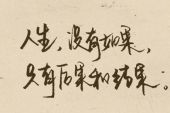 人生，没有如果，
只有后果和结果；